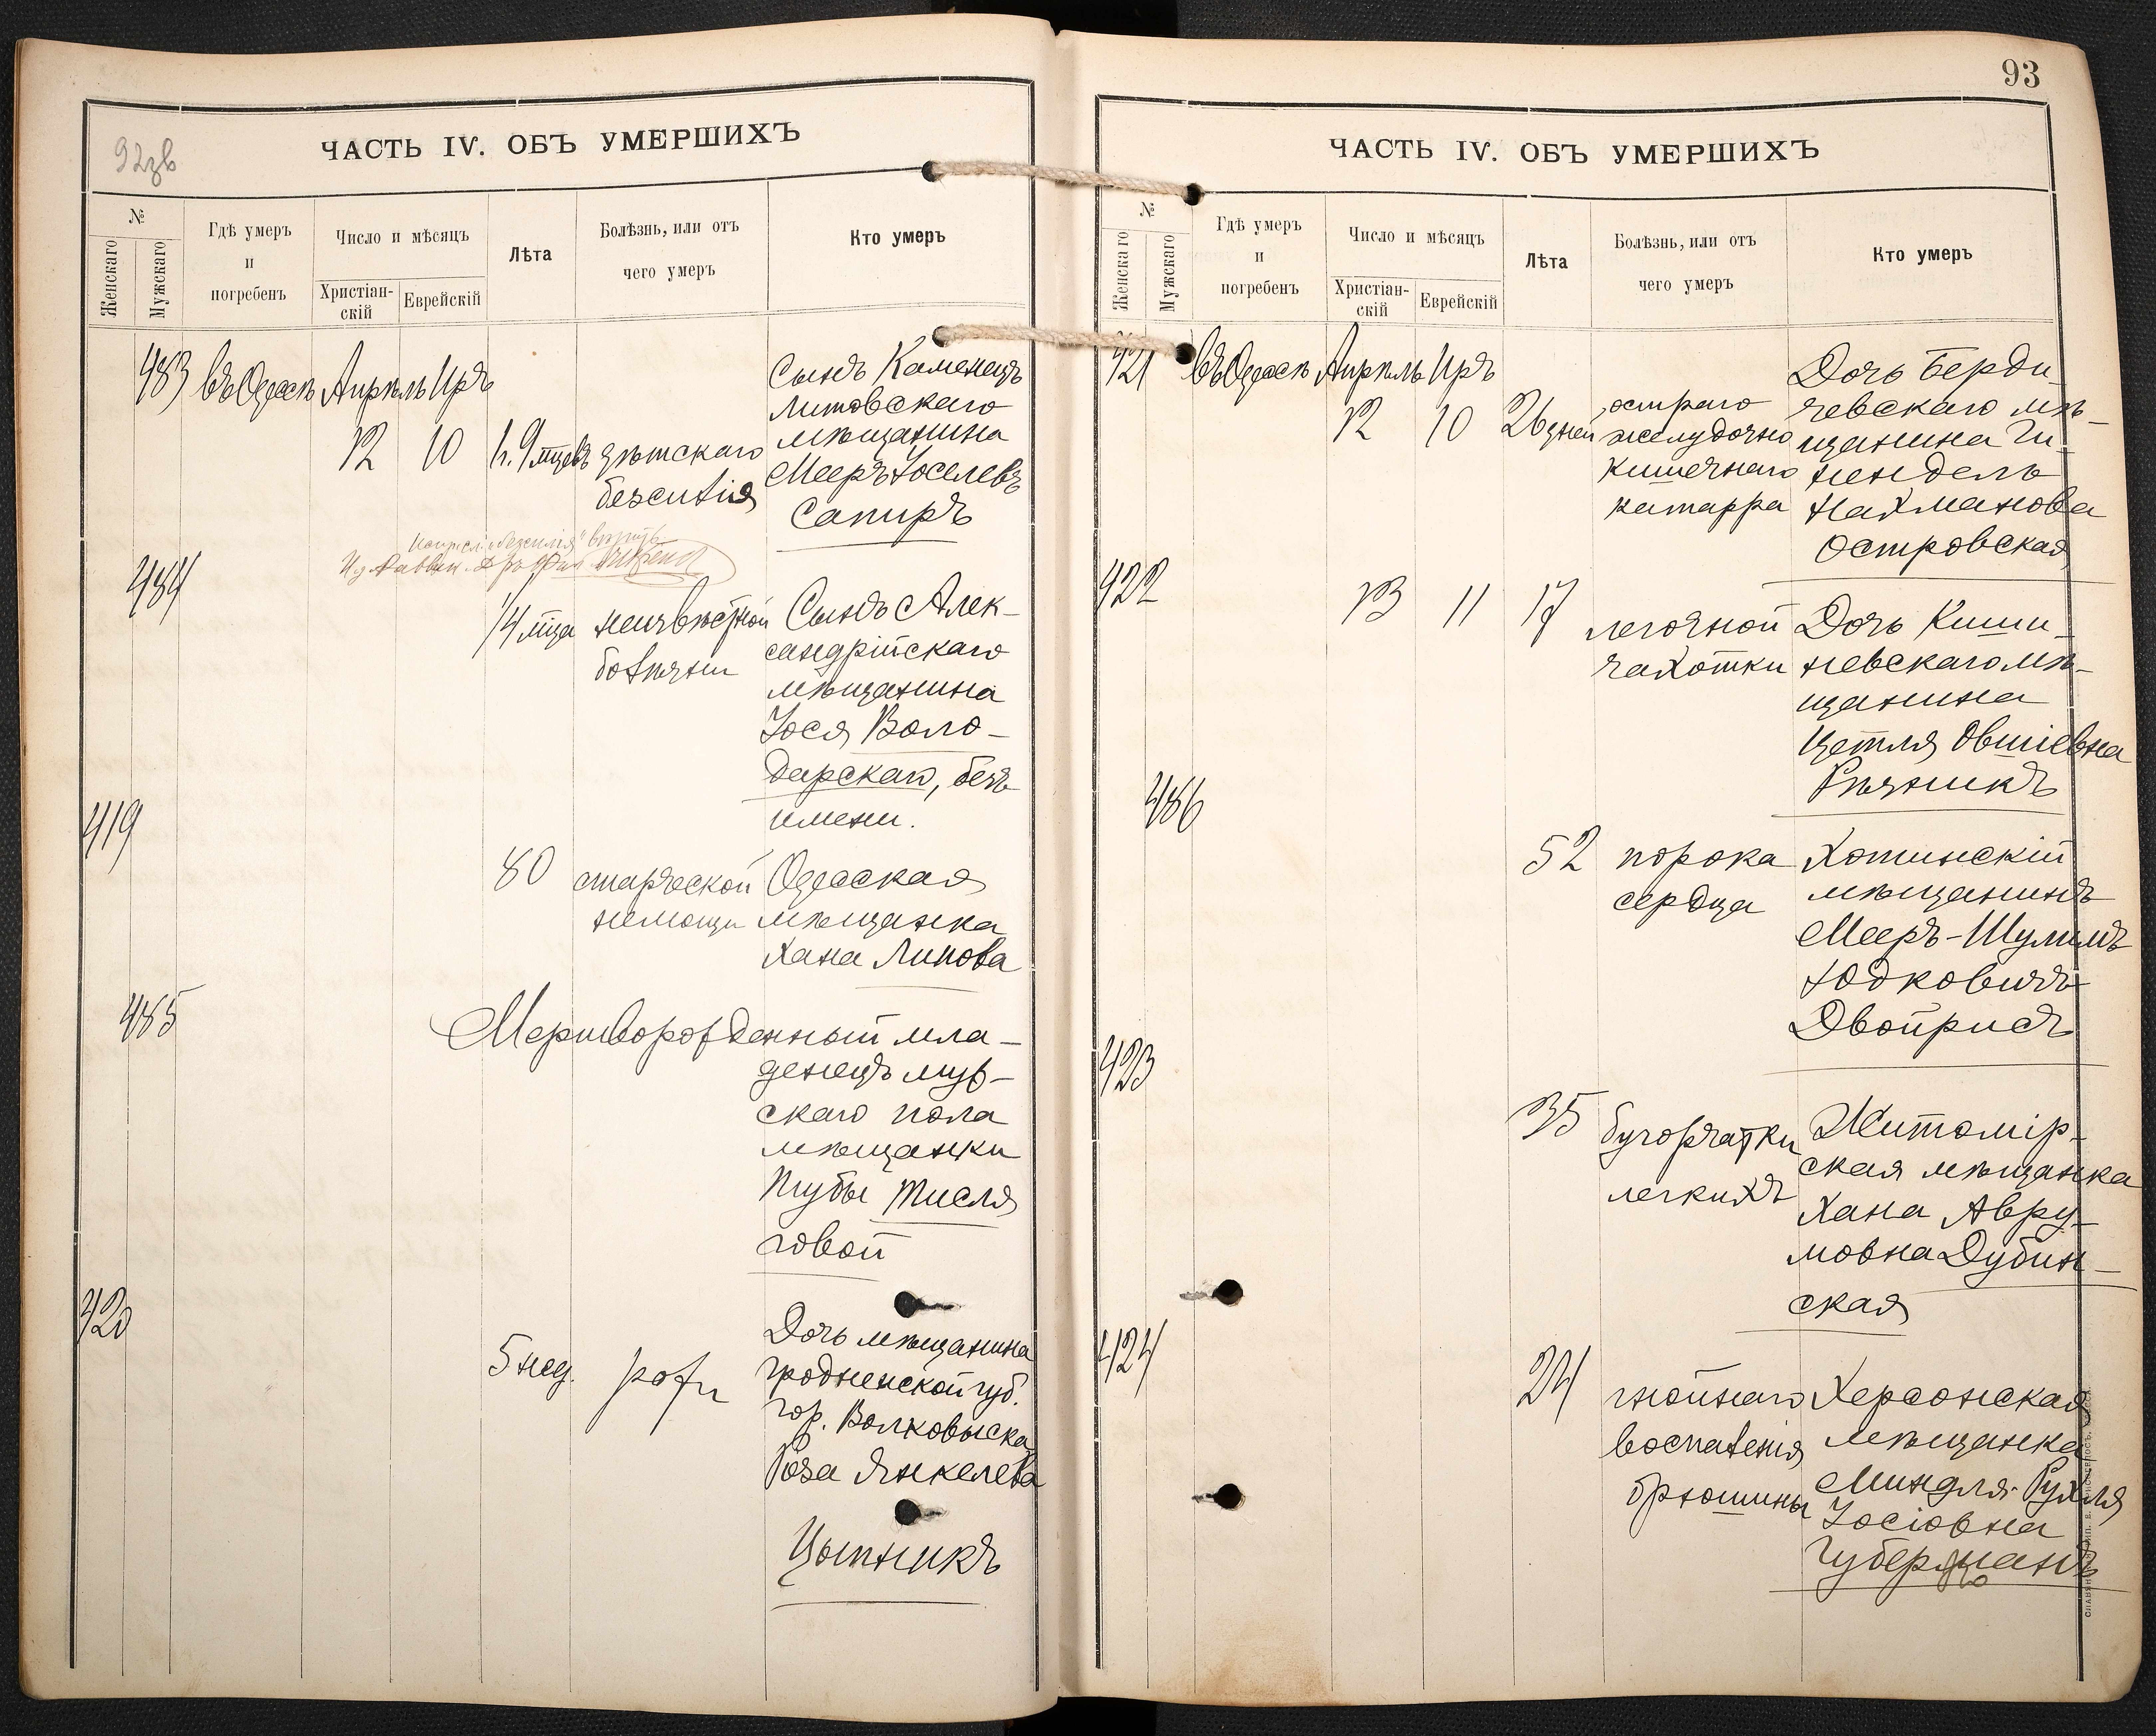 92зв
ЧАСТЬ IV. ОБЪ УМЕРШИХЪ
№
Женскаго
Мужскаго
Гдѣ умеръ
и
погребенъ
Число и мѣсяцъ
Христіан-
скій
Еврейскій
Лѣта
Болѣзнь, или отъ
чего умеръ
Кто умеръ
483 въ Одессѣ Апрѣль Иръ
12 10 1 г. 9 мцевъ
дѣтскаго
безсилія
Сынъ Каменецъ
Литовскаго
мѣщанина
Мееръ Іоселевъ
Сапиръ
484
1/4 мца
неизвѣстной
болѣзни
Сынъ Алек-
сандрійскаго
мѣщанина
Іося Воло-
дарскаго, безъ
имени.
419
80
старческой
немощи
Одесская
мѣщанка
Хана Липова
485
Мертворожденный мла-
денецъ муж-
скаго пола
мѣщанки
Тисля
говой
420
5 нед.
рожи
Дочь мѣщанина
Гродненской губ.
гор. Волковыска
Роза Янкелева
Цытникъ
93
ЧАСТЬ IV. ОБЪ УМЕРШИХЪ
№
Женскаго
Мужскаго
Гдѣ умеръ
и
погребенъ
Число и мѣсяцъ
Христіан-
скій
Еврейскій
Лѣта
Болѣзнь, или отъ
чего умеръ
Кто умеръ
421 въ Одессѣ Апрѣль Иръ
12 10 26 дней
остраго
желудочно
кишечнаго
катарра
Дочь Берди-
чевскаго мѣ-
щанина Ги-
нендель
Нахманова
Островская
422
13 11 17
легочной
чахотки
Дочь Киши-
невскаго мѣ-
щанина
Цетля Овшіевна
Рѣзникъ
486
52
порока
сердца
Хотинскій
мѣщанинъ
Мееръ-Шулимъ
Юдковичъ
Двойрисъ
423
35
бугорчатки
легкихъ
Житомір-
ская мѣщанка
Хана Авру-
мовна Дубин-
ская
424
24
гнойнаго
воспаленія
брюшины
Херсонская
мѣщанка
Миндля-Рухля
Іосіовна
Губерманъ